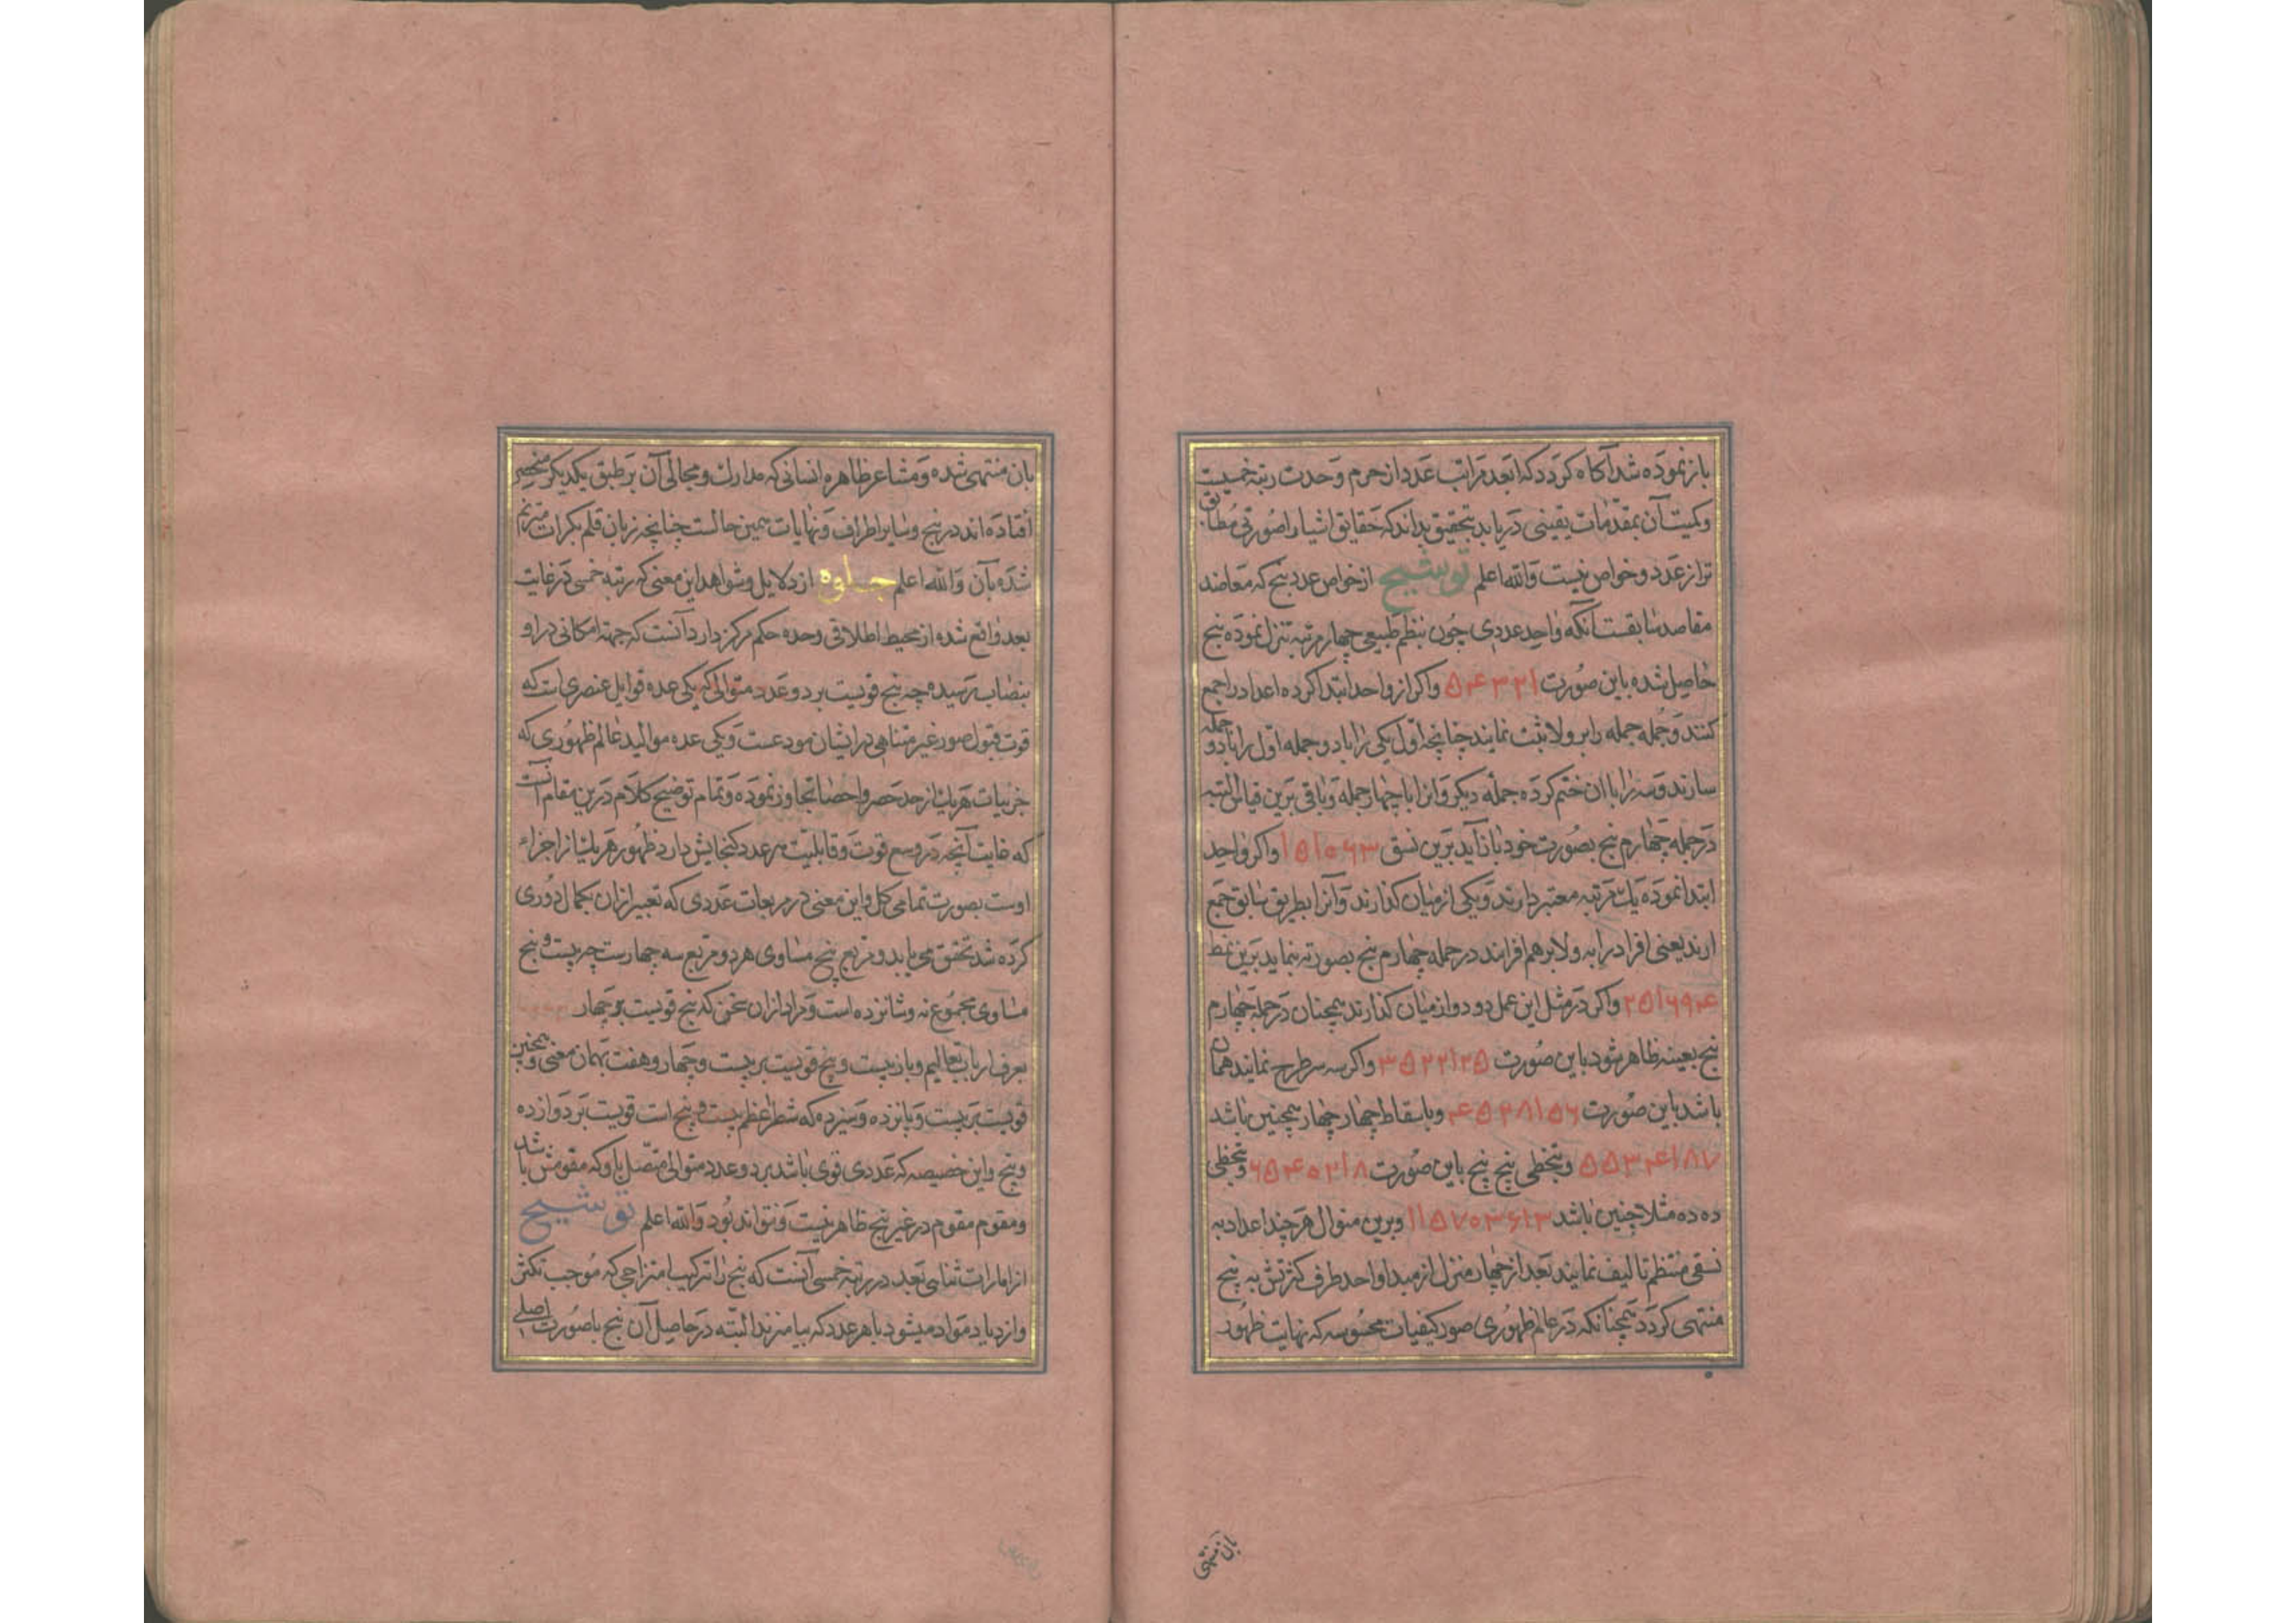 باز نموده شد آکاه کردد که ابعد مراتب عدد از حرم وحدت رتبه خمسیت
و کمیت آن بمقدمات یقینی دریابد بتحقیق بداند که حقایق اشیاء را صورتی مطابق
تر از عدد و خواص نیست والله اعلم توشیح از خواص عدد پنج که معاضد
مقاصد سابقست آنکه واحد عددی چون بنظم طبیعی چهار مرتبه تنزل نموده پنج
حاصل شده باین صورت ۱ ۲ ۳ ۴ ۵ واکر از واحد ابتدا کرده اعداد را جمع
کنند و جمله جمله را بر ولا ثبت نمایند چنانچه اول یکی را با دو جمله اول را با دو جمله
سازند و سه را با ان ختم کرده جمله دیکر و انرا با چهار جمله و باقی برین قیاس البته
در جمله چهارم پنج بصورت خود باز آید برین نسق ۳ ۶ ۱۰ ۱۵ واکر واحد
ابتدا نموده یک مرتبه معتبر دارند و یکی از میان کذارند و آنرا بطریق سابق جمع
ارند یعنی افراد را به ولا بر هم افزایند در جمله چهارم پنج بصورته نماید برین نمط
۴ ۹ ۱۶ ۲۵ واکر در مثل این عمل دو دو از میان کذارند همچنان در جمله چهارم
پنج بعینه ظاهر شود باین صورت ۵ ۱۲ ۲۲ ۳۵ واکر سه سه طرح نمایند همان
باشد باین صورت ۶ ۱۵ ۲۸ ۴۵ و باسقاط چهار چهار همچنین باشد
۷ ۱۸ ۳۴ ۵۵ و بتخطی پنج پنج باین صورت ۸ ۲۱ ۴۰ ۶۵ و بتخطی
ده ده مثلا چنین باشد ۱۳ ۳۶ ۷۰ ۱۱۵ و برین منوال هر چند اعداد به
نسقی منتظم تالیف نمایند بعد از چهار منزل از مبدا واحد طرف کثرتش به پنج
منتهی کردد همچنانکه در عالم ظهوری صور کیفیات محسوسه که نهایت ظهور
بان منتهی
بان منتهی شده و مشاعر ظاهره انسانی که مدارک و مجالی آن بر طبق یکدیکر منحصر
افتاده اند در پنج و سایر اطراف و نهایات همین حالست چنانچه زبان قلم بکرات مترنم
شده بآن والله اعلم جلوه از دلایل و شواهد این معنی که رتبه خمسی در غایت
بعد واقع شده از محیط اطلاقی وحده حکم مرکز دارد آنست که جهت امکانی در او
بنصاب رسیده چه پنج قویست بر دو عدد متوالی که یکی عده قوابل عنصری است که
قوت قبول صور غیر متناهی در ایشان مودعست و یکی عده موالید عالم ظهوری که
جزییات هر یک از حد حصر و احصا تجاوز نموده و تمام توضیح کلام درین مقام آنست
که غایت آنچه در وسع قوت و قابلیت هر عدد کنجایش دارد ظهور هر یک از اجزاء
اوست بصورت تمامی کل و این معنی در مربعات عددی که تعبیر از ان بکمال دوری
کرده شد تحقق می یابد و مربع پنج مساوی هر دو مربع سه چهار ست چه بیست و پنج
مساوی مجموع نه و شانزده است و مراد از ان سخن که پنج قویست بر چهار
بعرف ارباب تعالیم و باز بیست و پنج قویست بر بیست و چهار و هفت بهمان معنی و همچنین
قویست بر بیست و پانزده و سیزده که شطر اعظم بیست و پنج است قویست بر دوازده
و پنج و این خصیصه که عددی قوی باشد بر دو عدد متوالی متصل باو که مقومش باشد
و مقوم مقوم در غیر پنج ظاهر نیست و نتواند بود والله اعلم توشیح
از امارات تناهی بعد در رتبه خمسی آنست که پنج را ترکیب امتزاجی که موجب تکثر
و ازدیاد مواد میشود با هر عدد که بیامیزند البته در حاصل آن پنج باصورت اصلی